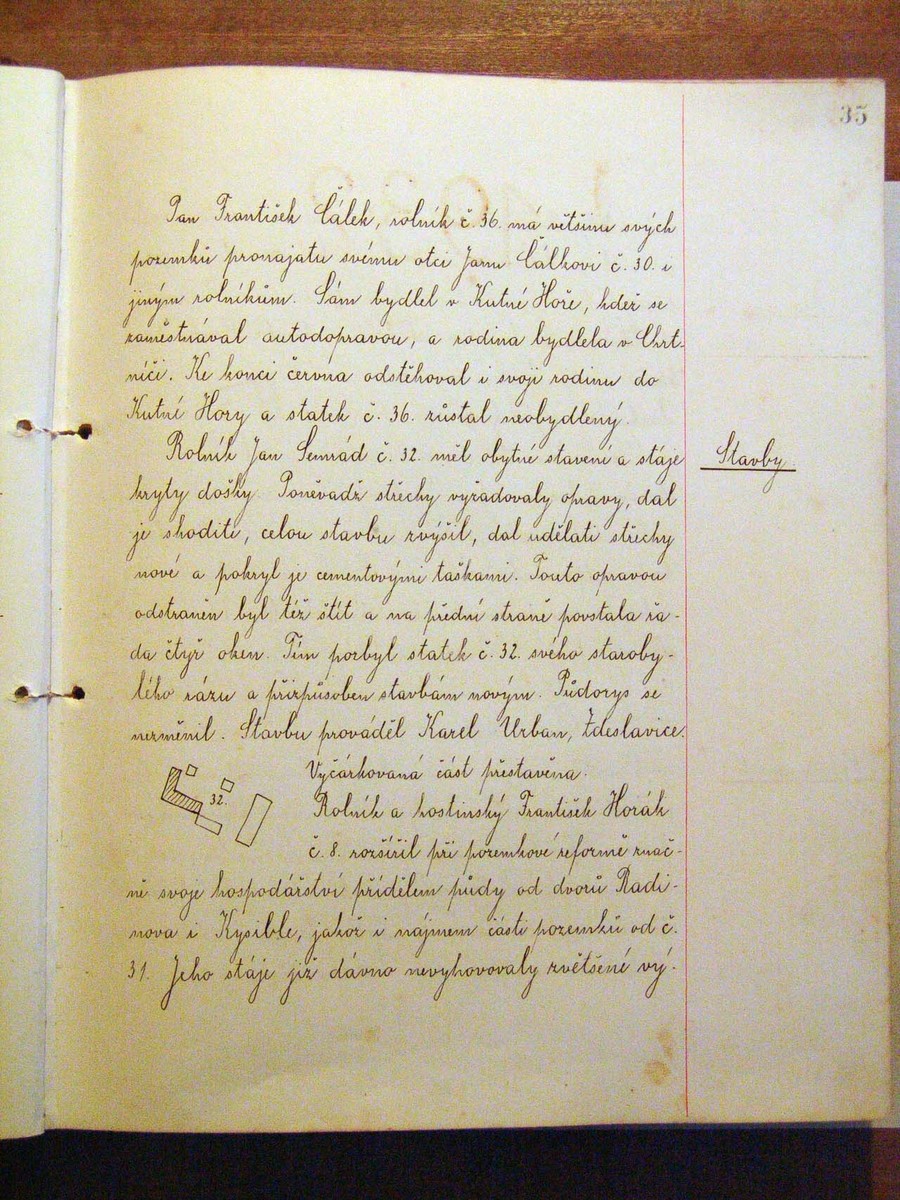 35
Pan František Čálek, rolník č. 36. má většinu svých
pozemků pronajatu svému otci Janu Čálkovi č. 30. i
jiným rolníkům. Sám bydlel v Kutné Hoře, kdež se
zaměstnával autodopravou, a rodina bydlela v Chrt-
níči. Ke konci června odstěhoval i svoji rodinu do
Kutné Hory a statek č. 36. zůstal neobydlený.
Rolník Jan Semrád č. 32. měl obytné stavení a stáje
Stavby
kryty došky. Poněvadž střechy vyžadovaly opravy, dal
je shoditi, celou stavbu zvýšil, dal udělati střechy
nové a pokryl je cementovými taškami. Touto opravou
odstraněn byl též štít a na přední straně povstala řa-
da čtyř oken. Tím pozbyl statek č. 32. svého staroby-
lého rázu a přizpůsoben stavbám novým. Půdorys se
nezměnil. Stavbu prováděl Karel Urban, Zdeslavice.
Vyčárkovaná část přestavěna.
32.
Rolník a hostinský František Horák
č. 8. rozšířil při pozemkové reformě znač-
ně svoje hospodářství přídělem půdy od dvorů Radi-
nova i Kysible, jakož i nájmem části pozemků od č.
31. Jeho stáje již dávno nevyhovovaly zvětšené vý-